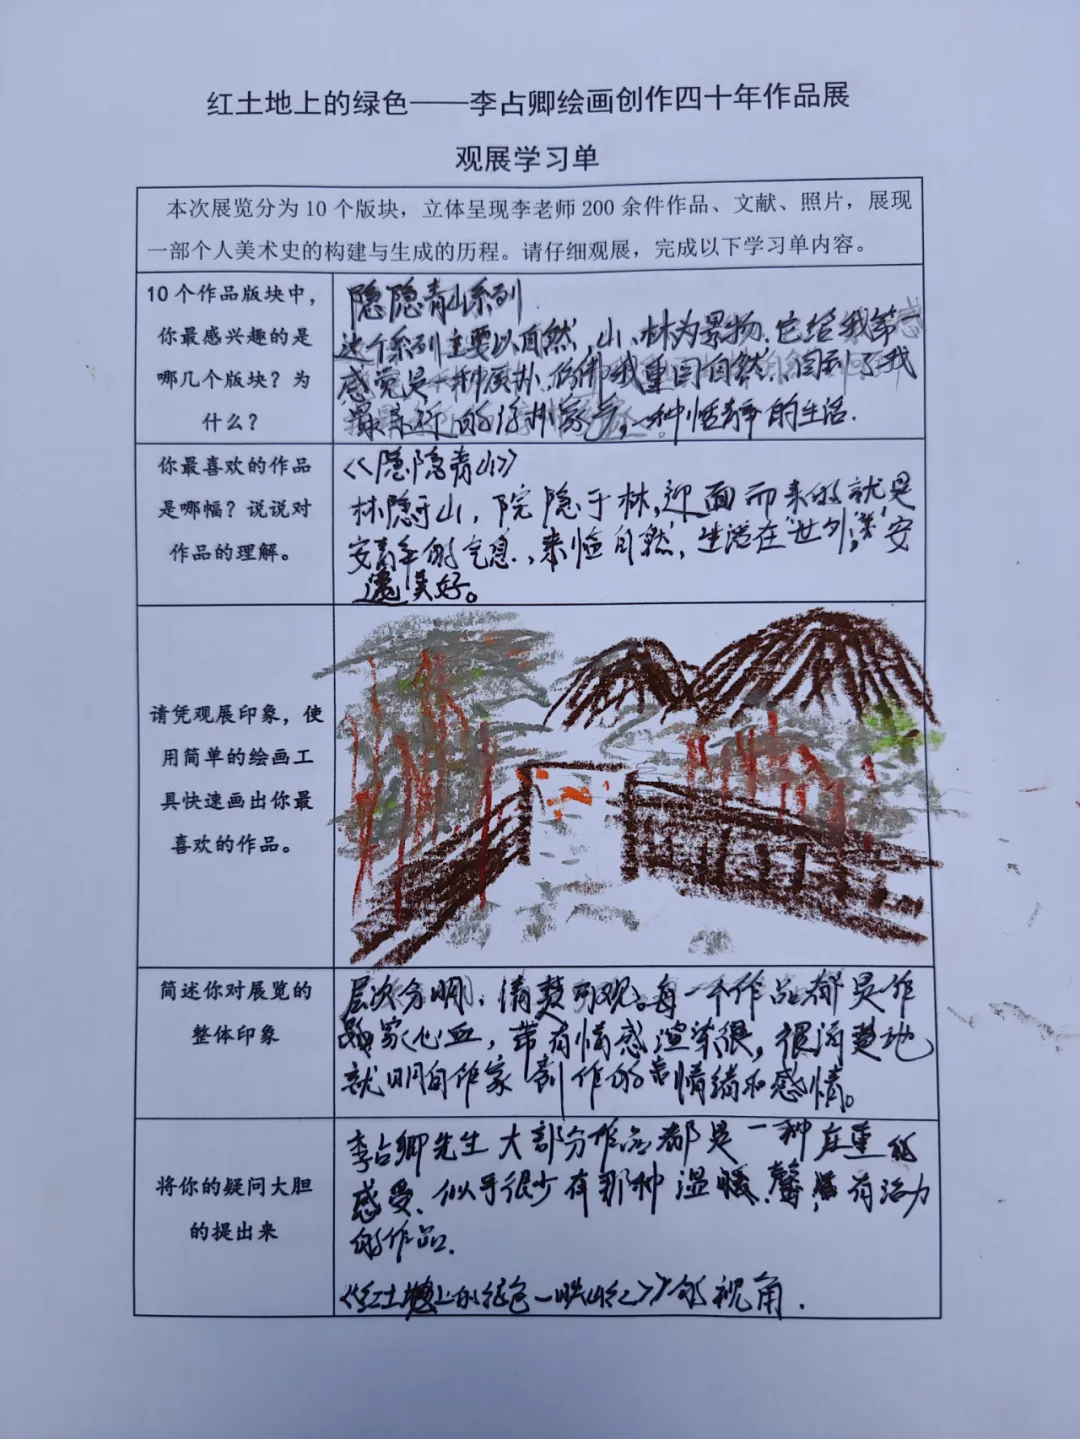 红土地上的绿色——李占卿绘画创作四十年作品展
观展学习单
本次展览分为10个版块，立体呈现李老师200余件作品、文献、照片，展现
一部个人美术史的构建与生成的历程。请仔细观展，完成以下学习单内容。
10个作品版块中，
你最感兴趣的是
哪几个版块？为
什么？
隐隐青山系列
这个系列主要以自然，山、林为景物.它给我第一
感觉是一种质朴,仿佛我重回自然,回到了我
最亲近的，一种恬静的生活.
你最喜欢的作品
是哪幅？说说对
作品的理解。
《隐隐青山》
林隐于山，院隐于林,迎面而来的就是
安静的气息.,来临自然，生活在"世外"，安
逸美好。
请凭观展印象，使
用简单的绘画工
具快速画出你最
喜欢的作品。
简述你对展览的
整体印象
层次分明，清楚可观。每一个作品都是作
家心血，带有情感渲染很，很清楚地
就明白作家创作的情绪和感情。
将你的疑问大胆
的提出来
李占卿先生大部分作品都是一种庄重的
感受.似乎很少有那种温暖.馨，有活力
的作品.
《红土地上的绿色一映山红》的视角.